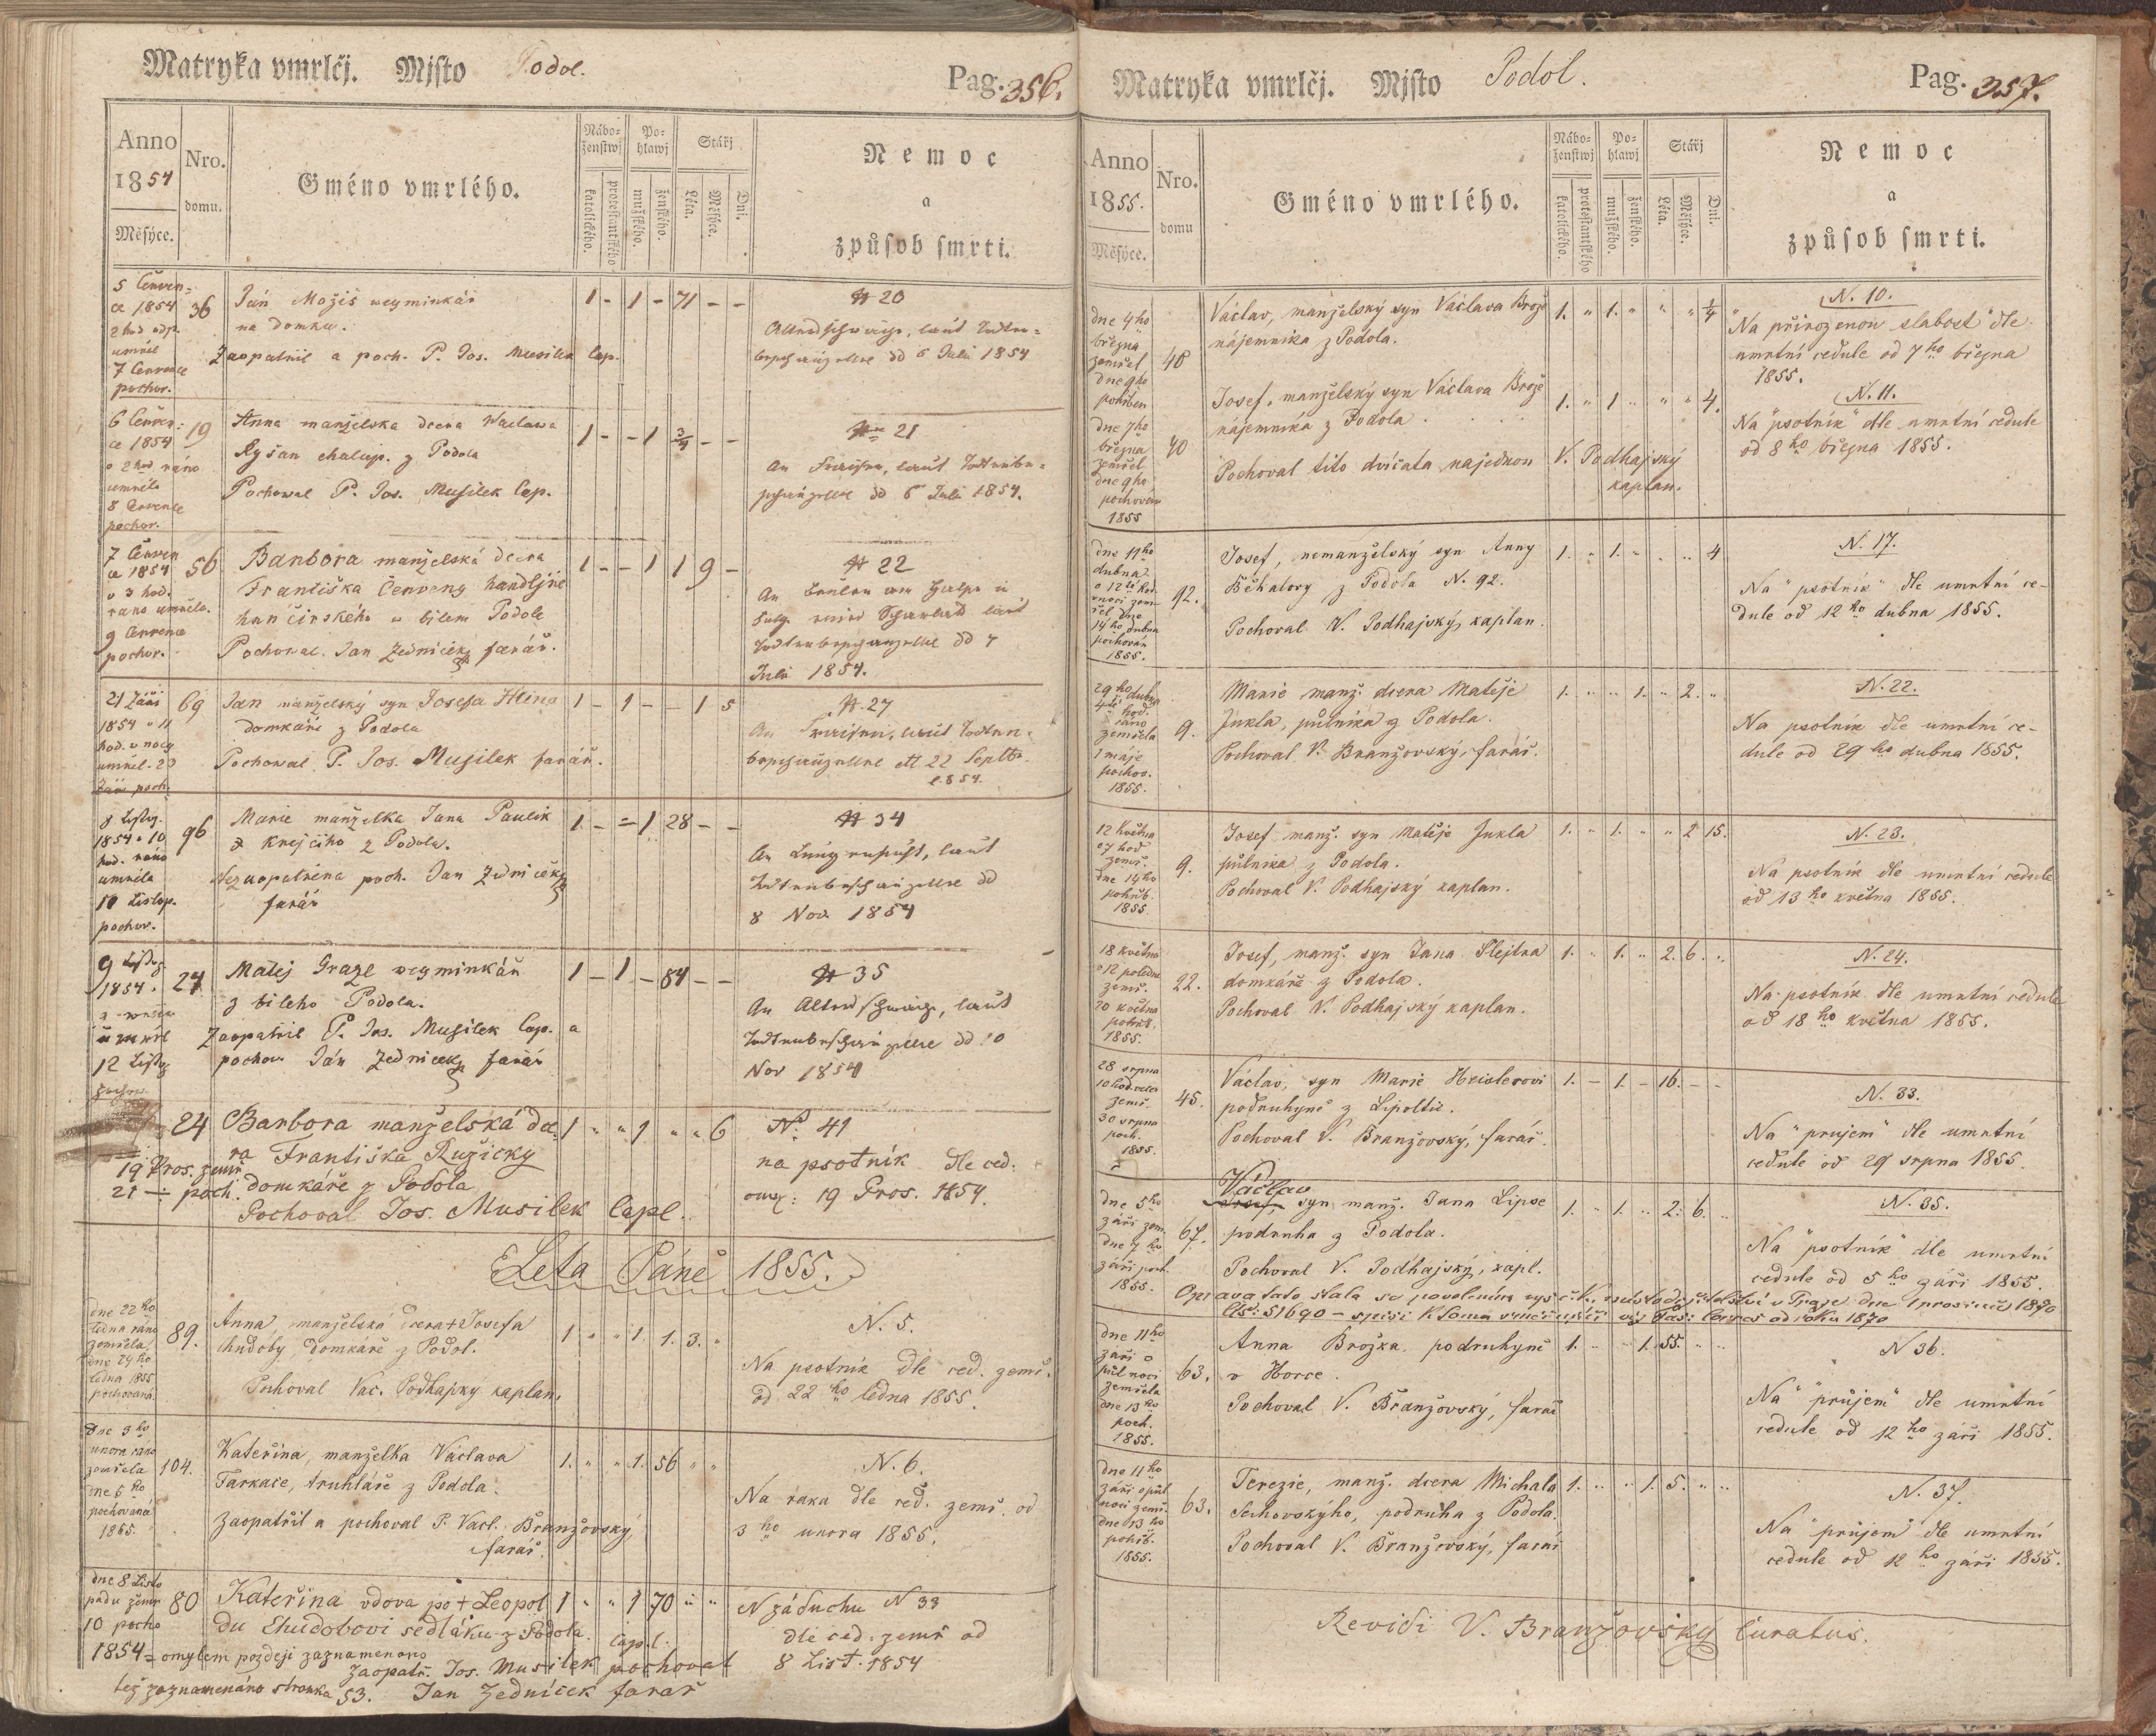 Matryka vmrlčj. Mjsto Podol. Pag. 356.
Anno 1854
Měsýce.
Nro. domu.
Gméno vmrlého.
Nábo-
ženstwj
katolického.
protestantského
Po-
hlawj
mužského.
ženského.
Stářj
Léta.
Měsýce.
Dni.
Nemoc
a
způsob smrti.
5 Červen-
ce 1854
2 hod odp.
umřel
7 Července
pochov.
36
Ján Možiš weyminkář
na domku.
Zaopatřil a poch. P. Jos. Musilek Cap.
1 - 1 - 71 - -
N 20
Altersschwäche, laut Todten-
beschauzettel dd 6 Juli 1854
6 Červen-
ce 1854
o 2 hod ráno
umřela
8 Července
pochov.
19
Anna manželska dcera Waclawa
Ryšan chalup. z Podola
Pochowal P. Jos. Musilek Cap.
1 - - 1 3/4 - -
N 21
An Fraisen, laut Todtenbe-
schauzettel dd 6 Juli 1854.
7 Červen
ce 1854
o 3 hod.
rano umřela.
9 Července
pochov.
56
Barbora manželská dcera
Františka Červeny handlíře
hančirského w bilem Podole
Pochowal. Jan Zedniček farář.
1 - - 1 1 9 -
N 22
Todtenbeschauzettel dd 7
Juli 1854.
21 Záři
1854 o 11
hod. v nocy
umřel. 23
Záři poch.
69
Jan manželský syn Josefa Hlina
domkáře z Podola
Pochowal P. Jos. Musilek farář.
1 - 1 - - 1 5
N. 27
An Fraisen, laut Todten-
beschauzettel dtt 22 Septbr.
1854.
8 Listop.
1854 o 10
hod. ráno
umřela
10 Listop.
pochov.
96
Marie manželka Jana Paulik
krejčiho z Podola.
Nezaopatřena poch. Jan Zedniček
farář
1 - = 1 28 - -
N 34
An Lungensucht, laut
Todtenbeschauzettel dd
8 Nov 1854
9 Listop
1854
umřel
12 Listop
pochov
24
Matěj Graze weyminkář
z bileho Podola.
Zaopatřil P. Jos. Musilek Cap. a
pochov. Ján Zedniček farář
1 - 1 - 84 - -
N 35
An Altersschwäche, laut
Todtenbeschauzettel dd 10
Nov 1854
19 Pros. zemř
21 - poch.
24
Barbora manželská dce-
ra Františka Ružicky
domkáře z Podola
Pochoval Jos. Musilek Capl.
1 " " 1 " " 6
No 41
na psotník dle ced:
omrz: 19 Pros. 1854.
Léta Páně 1855.
dne 22ho
ledna ráno
zemřela,
dne 24ho
ledna 1855
pochovaná.
89.
Anna, manželská dcera + Josefa
Chudoby, domkáře z Podol.
Pochoval Vac. Podhajský kaplan.
1. " " 1. 1. 3. "
N. 5.
Na psotník dle ced. zemř.
od 22ho ledna 1855.
dne 3ho
unora ráno
zemřela
dne 5ho
pochovaná
1855.
104.
Kateřina, manželka Václava
Farkače, truhláře z Podola.
Zaopatřil a pochoval P. Vacl. Branžovský,
farář.
1. " " 1. 56 " "
N. 6.
Na raka dle ced. zemř. od
3ho unora 1855.
dne 8 Listo
padu zemř
10 pocho
1854
80
Kateřina vdova po + Leopol
du Chudobovi sedláku z Podola.
1 " " 1 70 " "
N záduchu N 33
dle ced. zemř od
8 List. 1854
omylem pozdeji zaznamenano
Capl.
zaopatř. Jos. Musilek pochoval
též zaznamenáno stranka 53. Jan Zedníček farář
Matryka vmrlčj. Mjsto Podol. Pag. 357.
Anno 1855.
Měsýce.
Nro. domu
Gméno vmrlého.
Nábo-
ženstwj
katolického.
protestantského
Po-
hlawj
mužského.
ženského.
Stářj
Léta.
Měsýce.
Dni.
Nemoc
a
způsob smrti.
dne 4ho
března
zemřel
dne 9ho
pohřben
40
Václav, manželský syn Václava Brože
nájemníka z Podola.
1. " 1. " " " 1/4
N. 10.
Na přirozenou slabost dle
umrtní cedule od 7ho března
1855.
dne 7ho
března
zemřel
dne 9ho
pochován
1855
40
Josef, manželský syn Václava Brože
nájemníka z Podola.
Pochoval tito dvíčata najednou V. Podhajský
kaplan.
1. " 1 " " " 4.
N. 11.
Na "psotník" dle umrtní cedule
od 8ho března 1855.
dne 11ho
dubna
o 12té hod.
v noci zem-
řel dne
14ho dubna
pochován
1855.
92.
Josef, nemanželský syn Anny
Běhalovy z Podola N. 92.
Pochoval V. Podhajský, kaplan.
1. " 1. " . " 4
N. 17.
Na "psotník" dle umrtní ce-
dule od 12ho dubna 1855.
29ho dubna
4té hod.
ráno
zemřela
1 máje
pochov.
1855.
9.
Marie manž. dcera Matěje
Jukla, půlníka z Podola.
Pochoval V. Branžovský, farář.
1. " " 1. " 2. "
N. 22.
Na psotník dle umrtní ce-
dule od 29ho dubna 1855.
12 května
o 7 hod
zemř.
dne 14ho
pohřb.
1855.
9.
Josef manž. syn Matěje Jukla
půlníka z Podola.
Pochoval V. Podhajský kaplan.
1. " 1. " " 2 15.
N. 23.
Na psotník dle umrtní cedule
od 13ho května 1855.
18 května
o 12 poledne
zemř.
20 května
pohřb.
1855.
22.
Josef, manž. syn Jana Šlejtra
domkáře z Podola.
Pochoval V. Podhajský kaplan.
1. " 1. " 2. 6. "
N. 24.
Na psotník dle umrtní cedule
od 18ho května 1855.
28 srpna
10 hod. večer
zemř.
30 srpna
poch.
1855.
45.
Václav, syn Marie Heislerovi
podruhyně z Lipoltic.
Pochoval V. Branžovský, farář.
1. - 1. - 16. - -
N. 33.
Na "prujem" dle umrtní
cedule od 29 srpna 1855.
dne 5ho
září zem.
dne 7ho
září poch.
1855.
67.
Václav
syn manž. Jana Lipse
podruha z Podola.
Pochoval V. Podhajský, kapl.
1. " 1. " 2. 6. "
N. 35.
Na "psotník" dle umrtní
cedule od 5ho září 1855.
Oprava tato stala se povolením vys. c. k. místodržitelství v Praze dne 1 prosince 1870
Čís. 51690 - spisi k tomu
dne 11ho
září o
půl noci
zemřela
dne 13ho
poch.
1855.
63.
Anna Brožka, podruhyně
v Horce.
Pochoval V. Branžovský, farář
1. " " 1. 55. " "
N 36.
Na "průjem" dle umrtní
cedule od 12ho září 1855.
dne 11ho
září o půl
noci zemř.
dne 13ho
pohřb.
1855.
63.
Terezie, manž. dcera Michala
Sechovskýho, podruha z Podola.
Pochoval V. Branžovský, farář
1. " " 1. 5. " "
N. 37.
Na "průjem" dle umrtní
cedule od 12ho září 1855.
Revidi V. Branžovský Curatus.